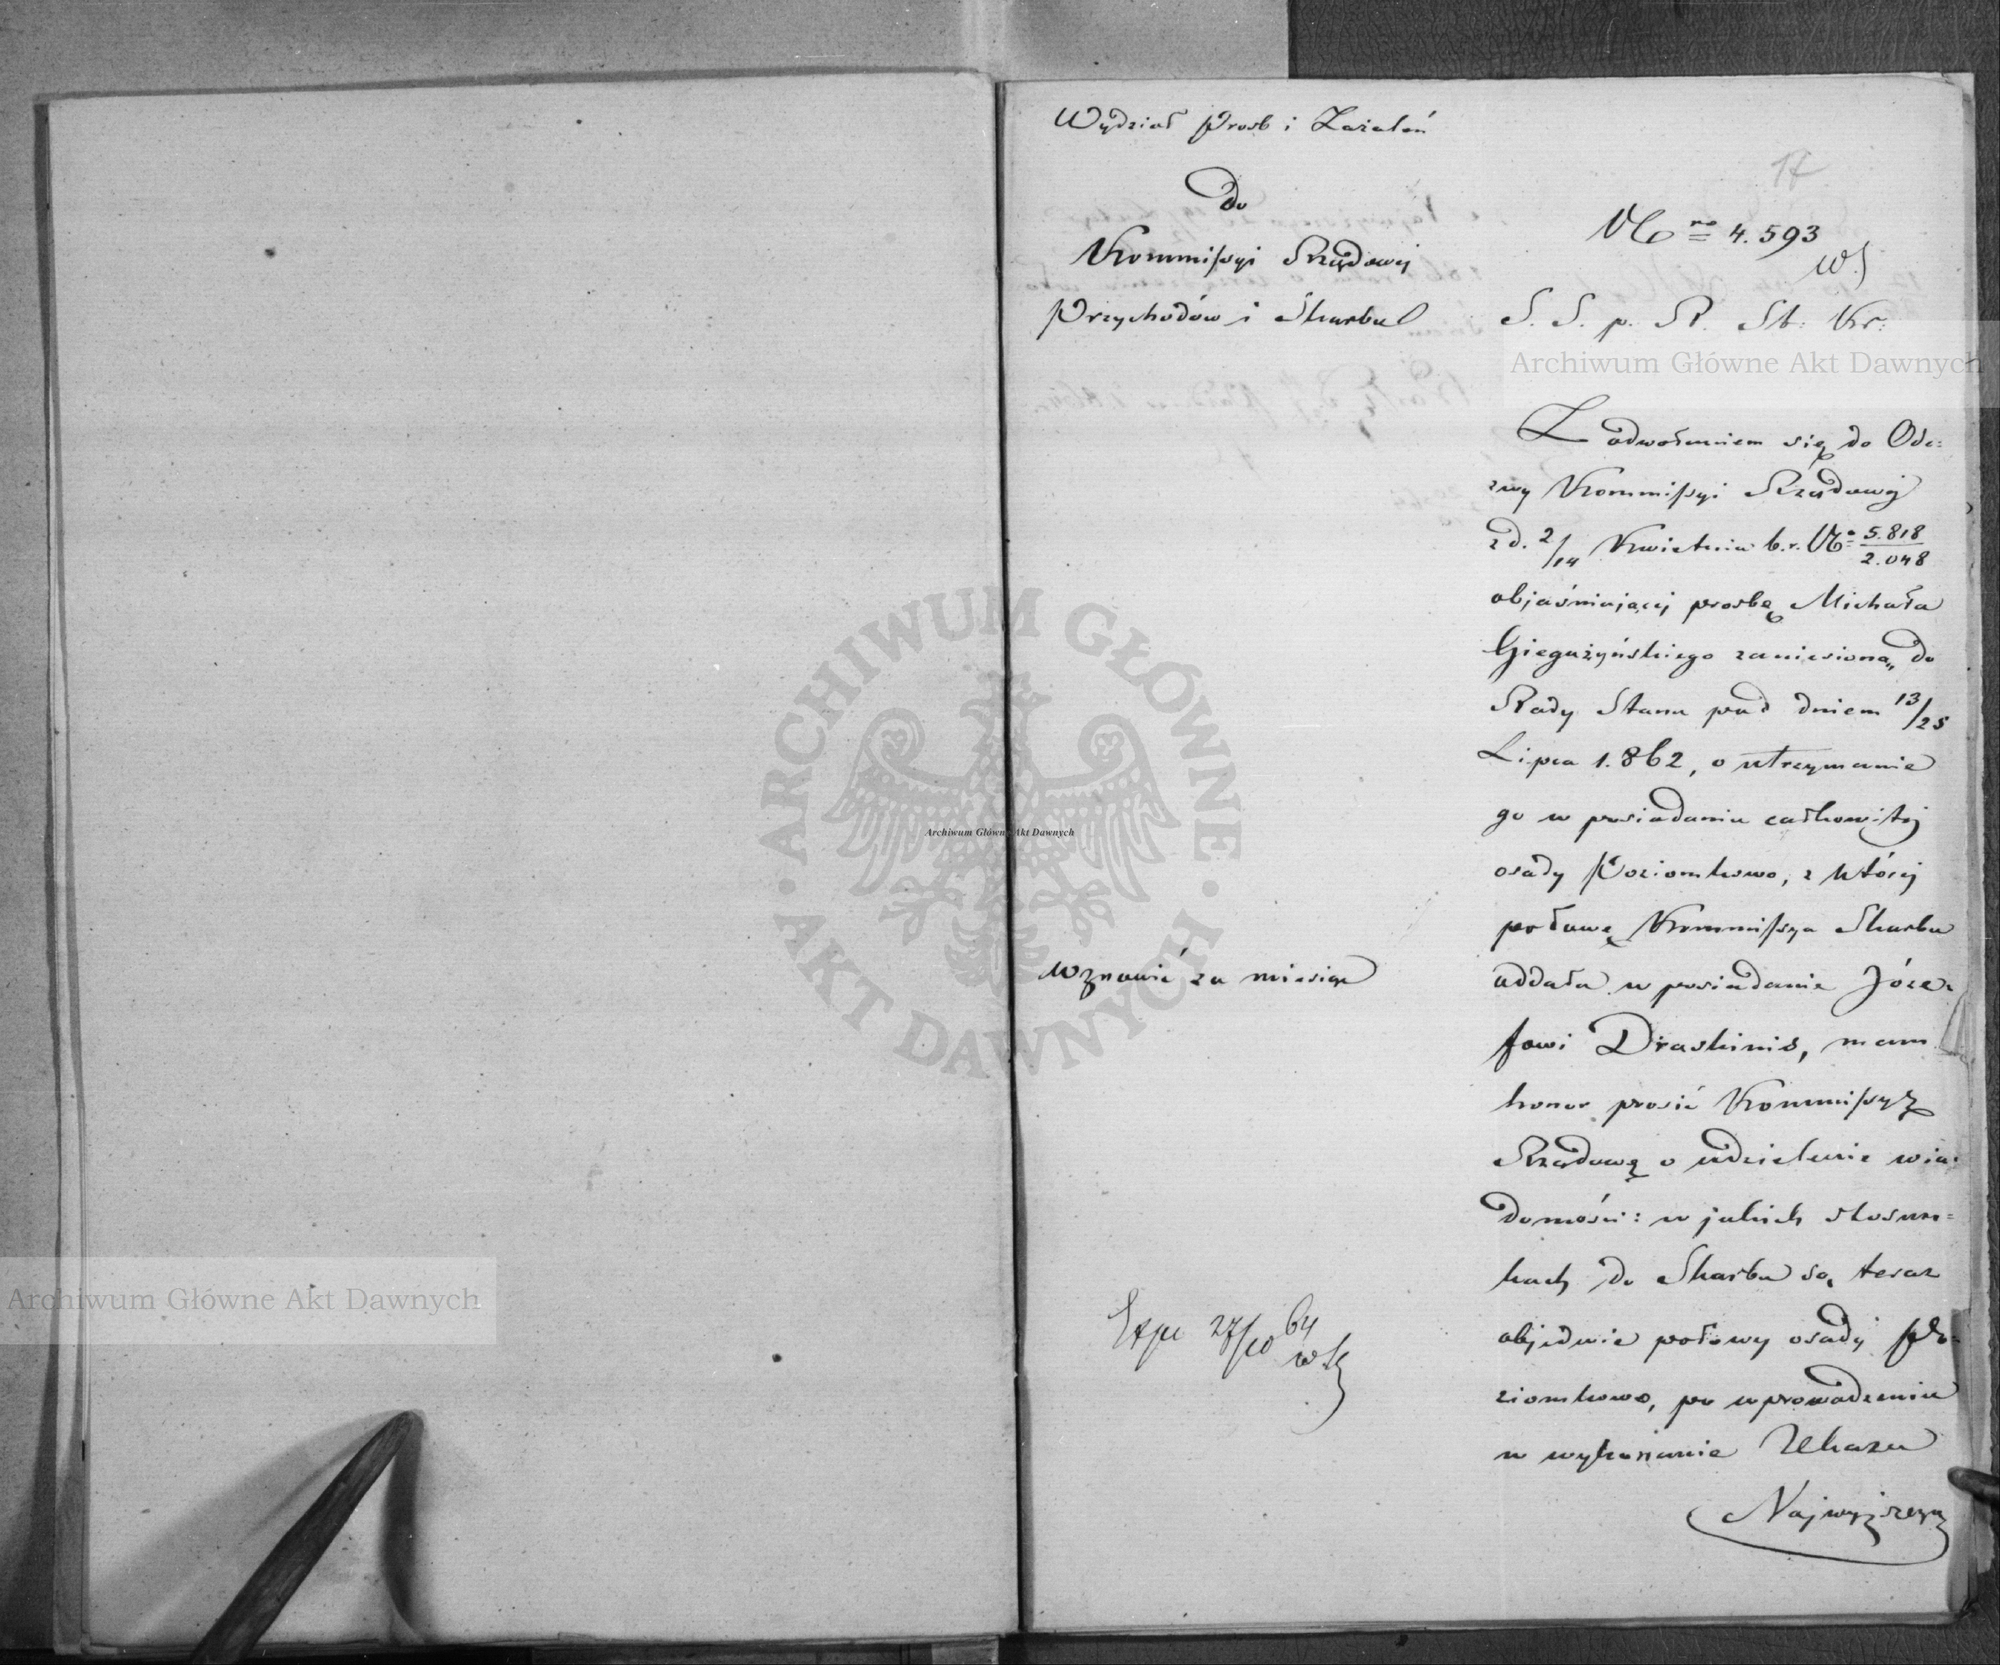 Wydział Prosb i Zażaleń
Do
Kommissyi Rządowej
Przychodów i Skarbu
17
No 4.593
S. S. p. R. St: Kr:
Archiwum Główne Akt Dawnych
Z odwołaniem się do Ode=
zwy Kommissyi Rządowej
z d. 2/14 Kwietnia b.r. No 5.818/2.048
objaśniającej prosbę Michała
Giegużyńskiego zaniesioną do
Rady Stanu pod dniem 13/25
Lipca 1.862, o utrzymanie
go w posiadaniu całkowitej
osady Poziomkowo, z której
połowę Kommissya Skarbu
oddała w posiadanie Józe=
fowi Draskinis, mam
honor prosić Kommissyę
Rządową o udzielenie wia=
domości: w jakich stosun=
kach do Skarbu są teraz
obiedwie połowy osady Po=
ziomkowo, po wprowadzeniu
w wykonanie Ukazu
Najwyższego
Wznowić za miesiąc
Exp 27/10 64
ARCHIWUM GŁÓWNE AKT DAWNYCH
Archiwum Główne Akt Dawnych
Archiwum Główne Akt Dawnych